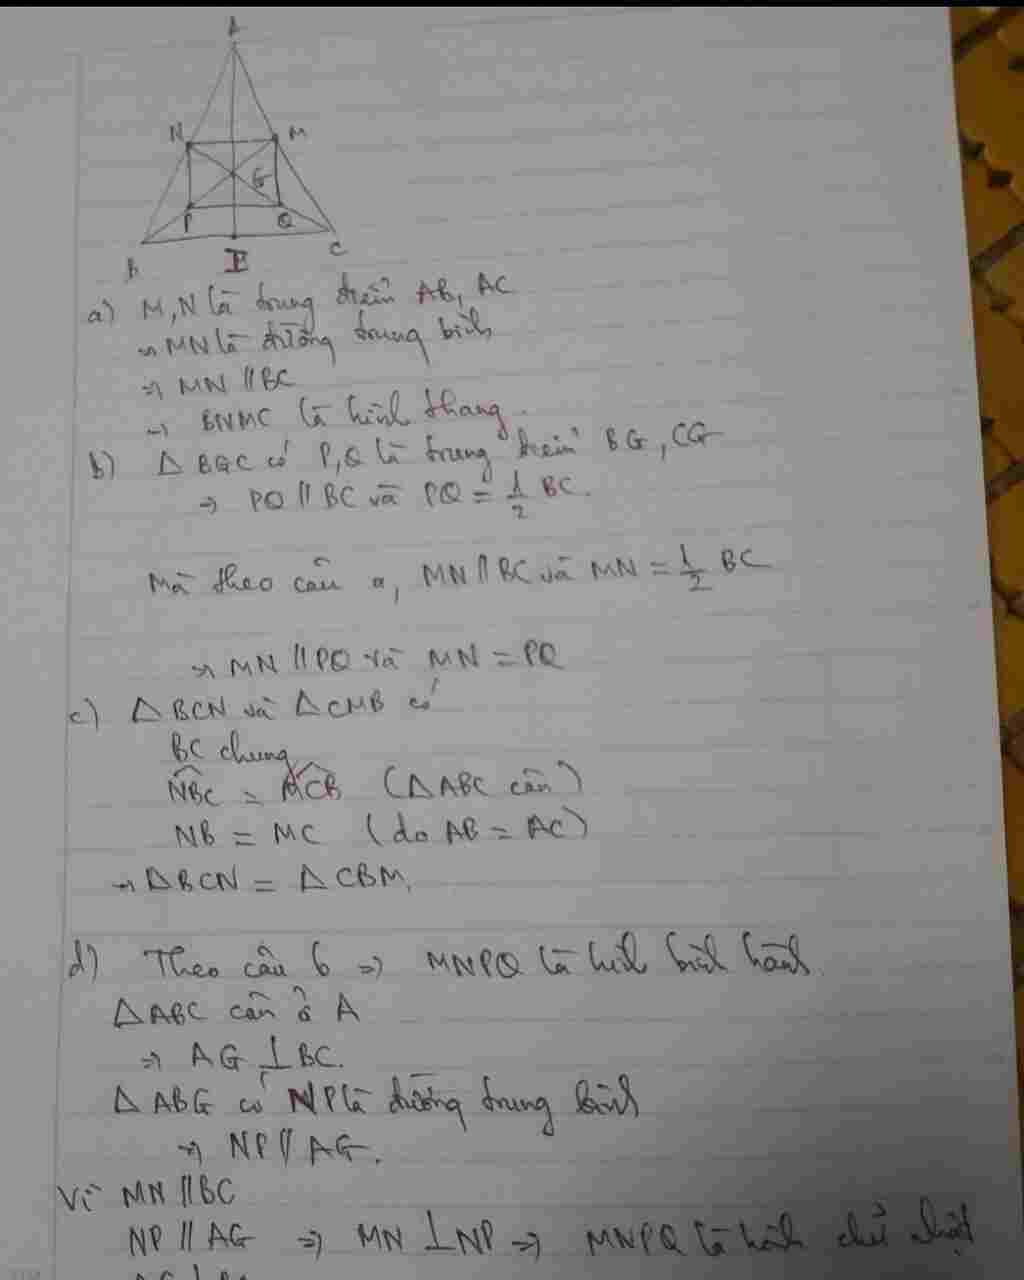 A
N
M
G
P
Q
B
E
C
a) M, N là trung điểm AB, AC
⇒ MN là đường trung bình
⇒ MN // BC
⇒ BNMC là hình thang.
b) Δ BGC có P, Q là trung điểm BG, CG
⇒ PQ // BC và PQ = 1/2 BC.
Mà theo câu a, MN // BC và MN = 1/2 BC
⇒ MN // PQ và MN = PQ
c) Δ BCN và Δ CMB có
BC chung
NBC = MCB (Δ ABC cân)
NB = MC (do AB = AC)
⇒ Δ BCN = Δ CBM.
d) Theo câu b ⇒ MNPQ là hình bình hành
Δ ABC cân ở A
⇒ AG ⊥ BC.
Δ ABG có NP là đường trung bình
⇒ NP // AG.
Vì MN // BC
NP // AG ⇒ MN ⊥ NP ⇒ MNPQ là hình chữ nhật